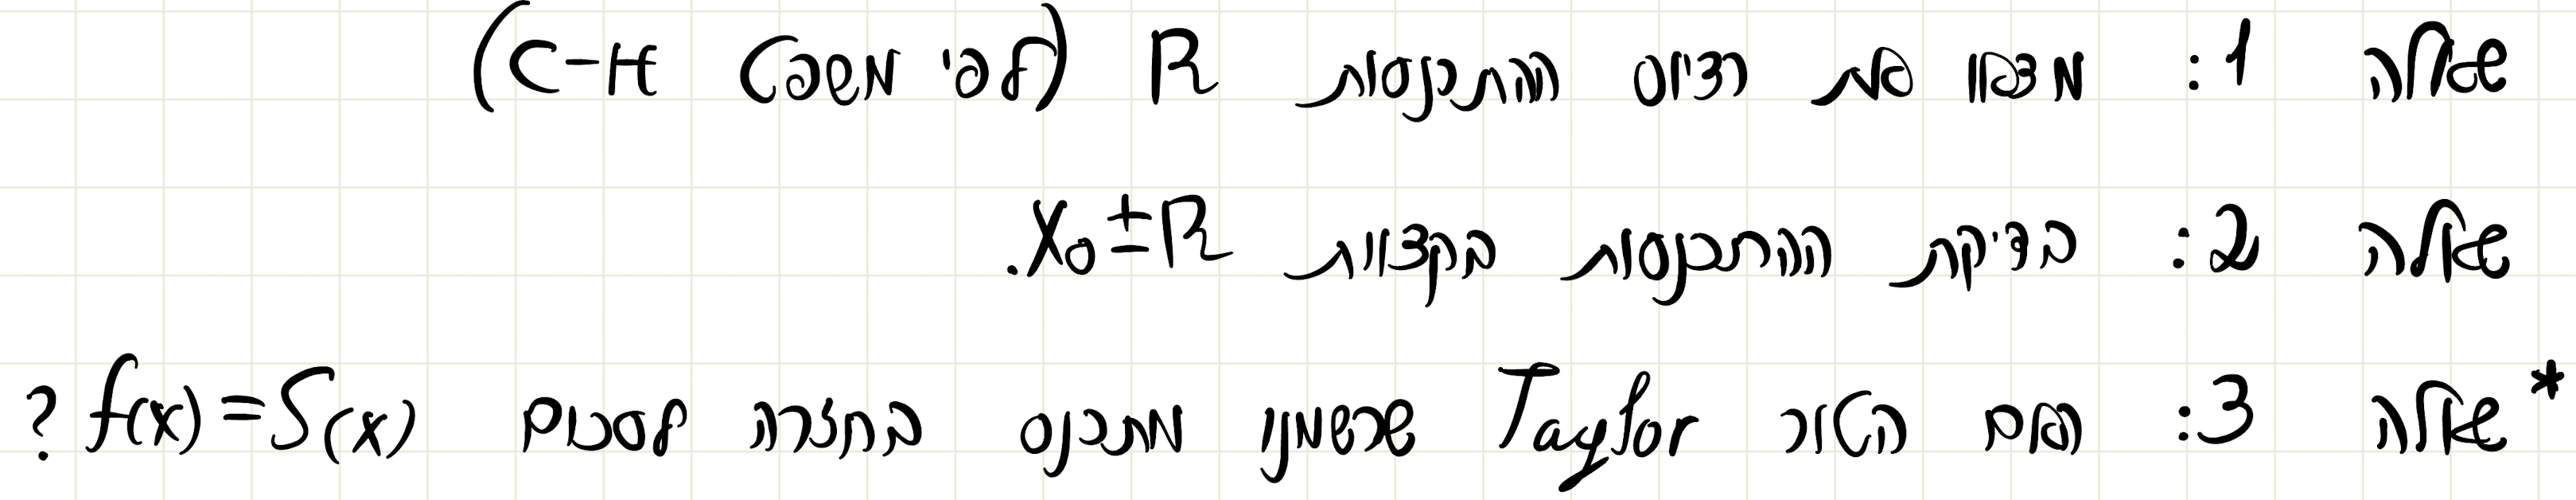 שאלה 1: מצאו את רדיוס ההתכנסות R (לפי משפט C-H)
שאלה 2: בדיקת ההתכנסות בקצוות X₀±R.
*שאלה 3: האם הטור Taylor שרשמנו מתכנס בחזרה לסכום f(x)=S(x)?